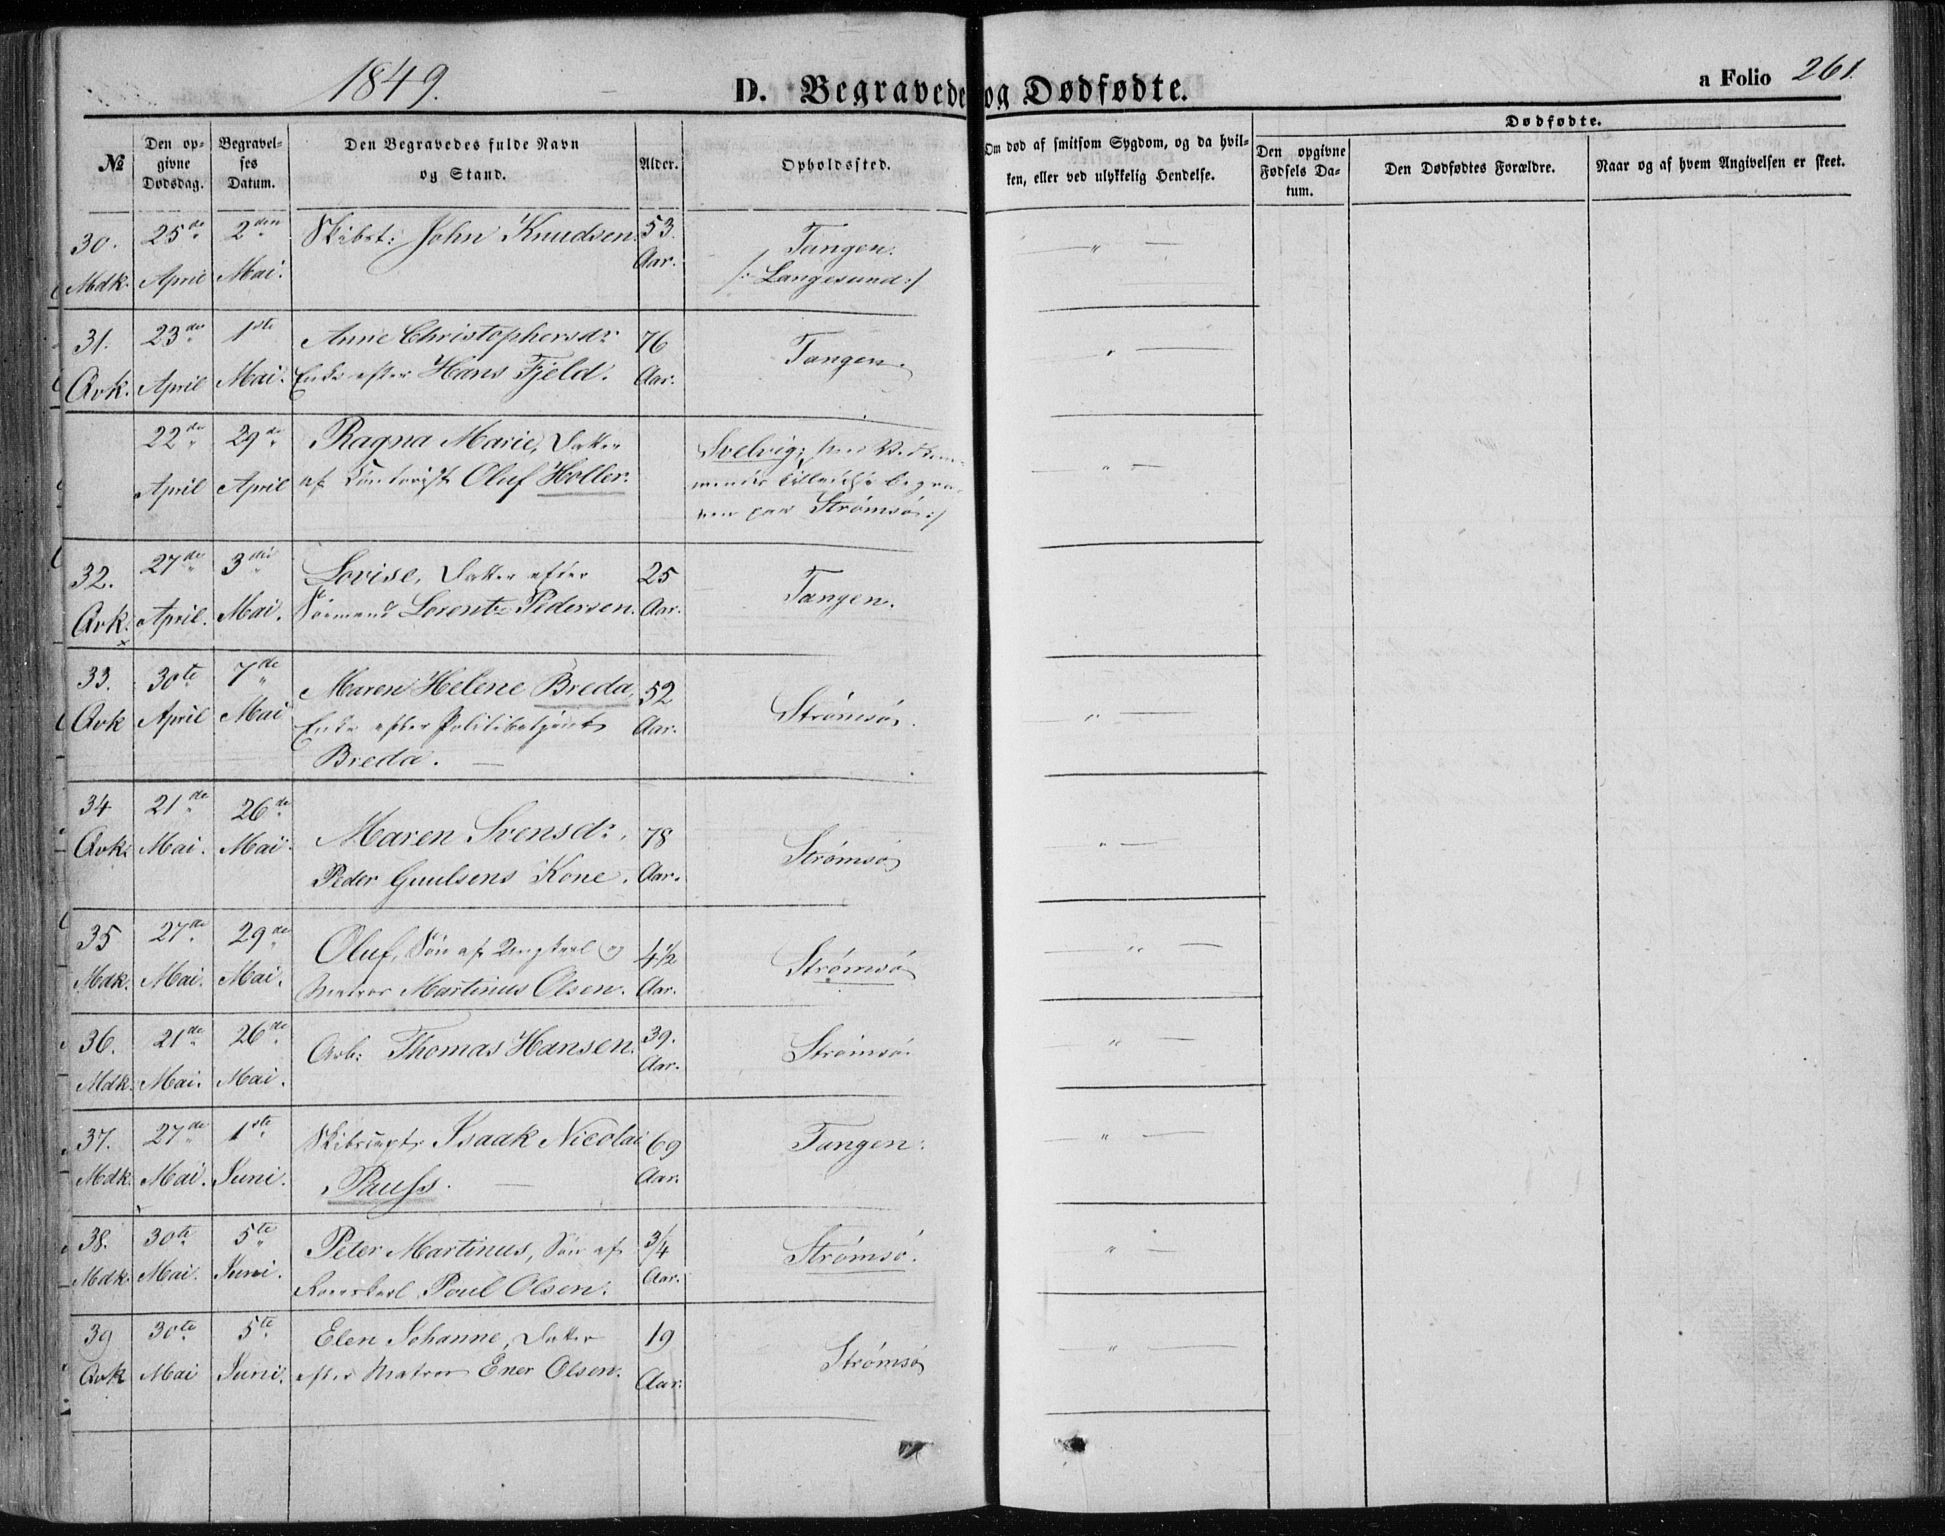 1849.
D. Begravede og Dødfødte.
a Folio 261.
№
Den opgivne Dødsdag.
Begravelses Datum.
Den Begravedes fulde Navn og Stand.
Alder.
Opholdssted.
Om død af smitsom Sygdom, og da hvilken, eller ved ulykkelig Hendelse.
Dødfødte.
Den opgivne Fødsels Datum.
Den Dødfødtes Forældre.
Naar og af hvem Angivelsen er skeet.
30. 25de 2den Skibst: John Knudsen. 53. Tangen. " —
Mdk. April Mai. Aar. /: Langesund :/
31. 23de 1ste Anne Christophersdr 76 Tangen. " —
Qvk. April Mai. Enke efter Hans Fjeld. Aar.
22de 29de Ragna Marie, Datter Svelvig; " —
April April af Contorist Oluf Holler. Tilladelse begra-
ven paa Strømsø :/
32. 27de 3die Lovise, Datter efter 25 Tangen.
Qvk. April. Mai. Sømand Lorentz Pedersen. Aar.
33. 30te 7de Maren Helene Breda, 52 Strømsø. " —
Qvk April Mai Enke efter Politibetjent Aar.
Breda. —
34 21de 26de Maren Svensdr. 78 Strømsø " —
Qvk. Mai. Mai. Peder Guulsens Kone. Aar.
35 27de 29de Oluf, Søn af Ungkarl og 4½ Strømsø " —
Mdk. Mai. Mai. Matros Martinus Olsen. Aar.
36. 21de 26de Arb: Thomas Hansen. 39. Strömsö. " —
Mdk. Mai. Mai. Aar.
37. 27de 1ste Skibscapt. Isaak Nicolai 69 Tangen. " —
Mdk. Mai. Juni. Pauss. — Aar.
38. 30te 5te Peter Martinus, Søn af 3/4 Strømsø. " —
Mdk. Mai. Juni. Poul Olsen. Aar.
39 30te 5te Elen Johanne, Datter 19 Strømsø " —
Qvk Mai Juni. efter Matros Ener Olsen. Aar.